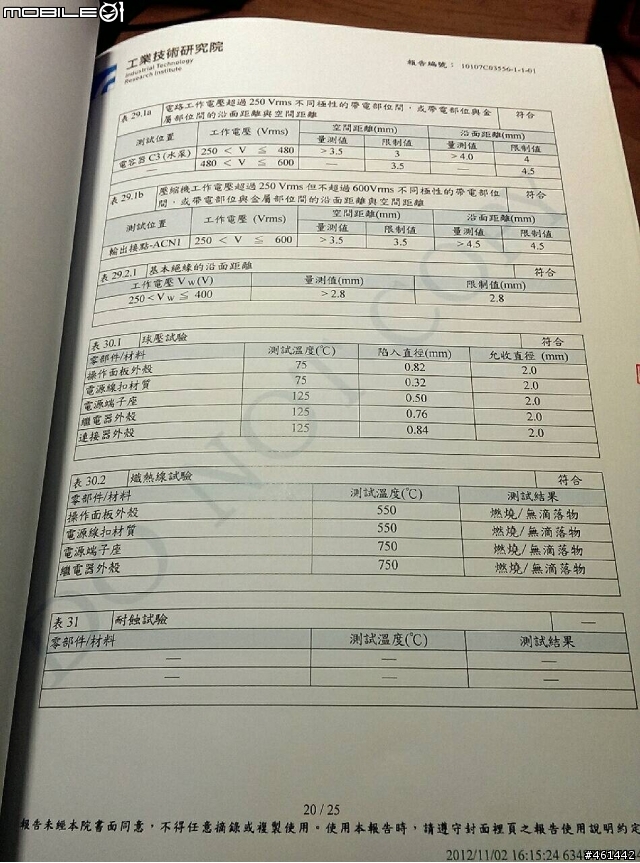 MOBILE01
工業技術研究院
Industrial Technology
Research Institute
報告編號： 10107C03556-1-1-01
表 29.1a 電路工作電壓超過 250 Vrms 不同極性的帶電部位間，或帶電部位與金 符合
屬部位間的沿面距離與空間距離
測試位置 工作電壓 (Vrms) 空間距離(mm) 沿面距離(mm)
量測值 限制值 量測值 限制值
電容器 C3 (水泵) 250 < V ≦ 480 >3.5 3 >4.0 4
— 480 < V ≦ 600 — 3.5 — 4.5
表 29.1b 壓縮機工作電壓超過 250 Vrms 但不超過 600Vrms 不同極性的帶電部位 符合
間，或帶電部位與金屬部位間的沿面距離與空間距離
測試位置 工作電壓 (Vrms) 空間距離(mm) 沿面距離(mm)
量測值 限制值 量測值 限制值
輸出接點-ACN1 250 < V ≦ 600 >3.5 3.5 >4.5 4.5
表 29.2.1 基本絕緣的沿面距離 符合
工作電壓 Vw(V) 量測值(mm) 限制值(mm)
250<Vw≦ 400 >2.8 2.8
表 30.1 球壓試驗 符合
零部件/材料 測試溫度(℃) 陷入直徑(mm) 允收直徑 (mm)
操作面板外殼 75 0.82 2.0
電源線扣材質 75 0.32 2.0
電源端子座 125 0.50 2.0
繼電器外殼 125 0.76 2.0
連接器外殼 125 0.84 2.0
表 30.2 熾熱線試驗 符合
零部件/材料 測試溫度(℃) 測試結果
操作面板外殼 550 燃燒/無滴落物
電源線扣材質 550 燃燒/無滴落物
電源端子座 750 燃燒/無滴落物
繼電器外殼 750 燃燒/無滴落物
表 31 耐蝕試驗 —
零部件/材料 測試溫度(℃) 測試結果
— — —
— — —
DO NOT COPY
20 / 25
報告未經本院書面同意，不得任意摘錄或複製使用。使用本報告時，請遵守封面裡頁之報告使用說明約定
2012/11/02 16:15:24 634
#461442